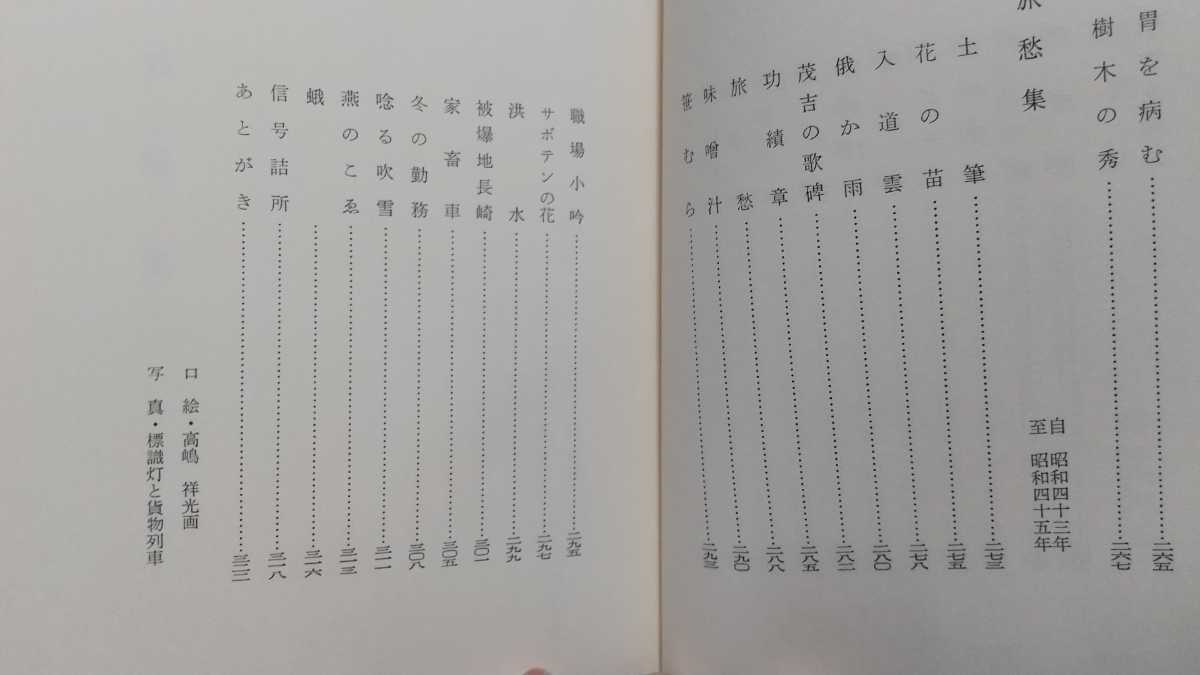 胃を病む……二六五
樹木の秀……二六七
愁集
自 昭和四十三年
至 昭和四十五年
土筆……二七三
花の苗……二七五
入道雲……二七八
俄か雨……二八〇
茂吉の歌碑……二八二
功績章……二八五
旅愁……二八八
味噌汁……二九〇
笹むら……二九三
職場小吟……二九五
サボテンの花……二九七
洪水……二九九
被爆地長崎……三〇一
家畜車……三〇五
冬の勤務……三〇八
唸る吹雪……三一一
燕のこゑ……三一三
蛾……三一六
信号詰所……三一八
あとがき……
口絵・高嶋 祥光画
写真・標識灯と貨物列車